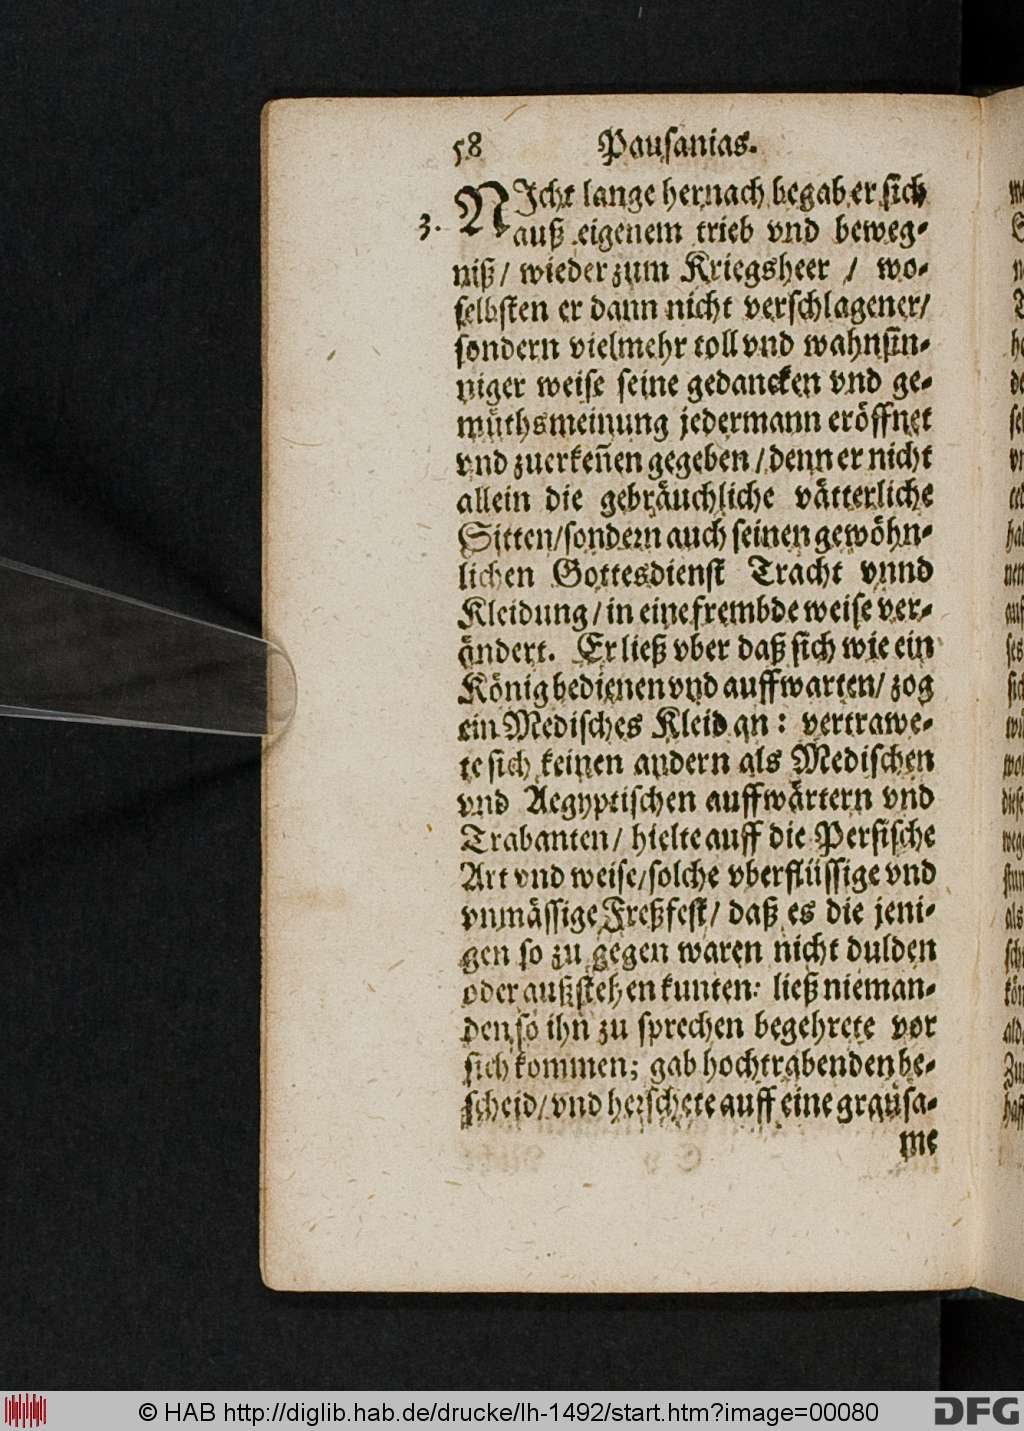 58 Pausanias.
3. NJcht lange hernach begab er sich
auß eigenem trieb vnd beweg-
niß / wieder zum Kriegsheer / wo-
selbsten er dann nicht verschlagener/
sondern vielmehr toll vnd wahnsin-
niger weise seine gedancken vnd ge-
müthsmeinung jedermann eröffnet
vnd zuerkeñen gegeben / denn er nicht
allein die gebräuchliche vätterliche
Sitten/sondern auch seinen gewöhn-
lichen Gottesdienst Tracht vnnd
Kleidung / in eine frembde weise ver-
ändert. Er ließ vber daß sich wie ein
König bedienen vnd auffwarten/ zog
ein Medisches Kleid an : vertrawe-
te sich keinen andern als Medischen
vnd Aegyptischen auffwärtern vnd
Trabanten / hielte auff die Persische
Art vnd weise/solche vberflüssige vnd
vnmässige Freßfest/ daß es die jeni-
gen so zu gegen waren nicht dulden
oder außstehen kunten: ließ nieman-
den so ihn zu sprechen begehrete vor
sich kommen; gab hochtrabenden be-
scheid/ vnd herschete auff eine graüsa-
me
© HAB http://diglib.hab.de/drucke/lh-1492/start.htm?image=00080
DFG